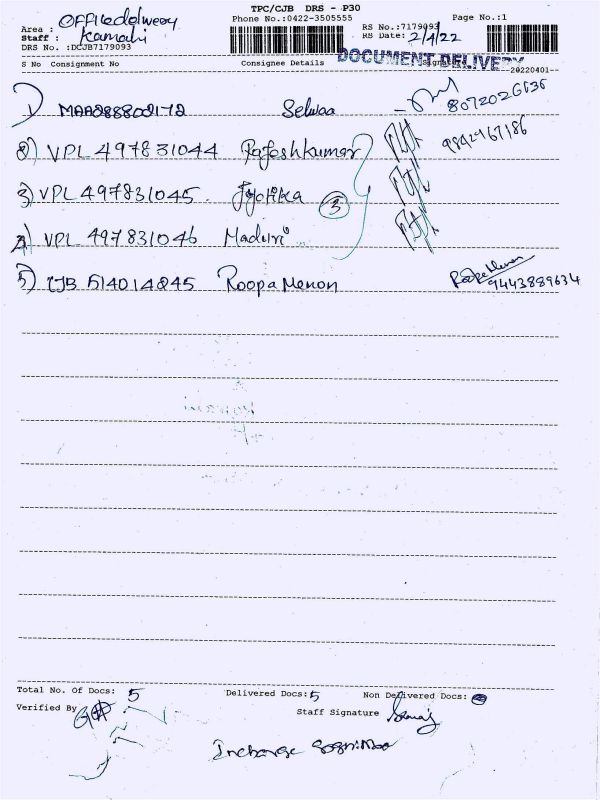 TPC/CJB DRS - P30
Phone No.:0422-3505555
Page No.:1
Area : Office delivery
Staff : Kamahi
DRS No. :DCJB7179093
RS No.:7179093
RS Date: 2/4/22
DOCUMENT DELIVERY
S No Consignment No Consignee Details
20220401
1) MAA2888002172 Selwaa 8072026636
2) VPL 497831044 Rajeshkumar 9842967186
3) VPL 497831045 Jyotika 3
4) VPL 497831046 Maduri
5) CJB 514014845 Roopa Menon 9443889634
Total No. Of Docs: 5 Delivered Docs: 5 Non Delivered Docs:
Verified By Staff Signature
Incharge